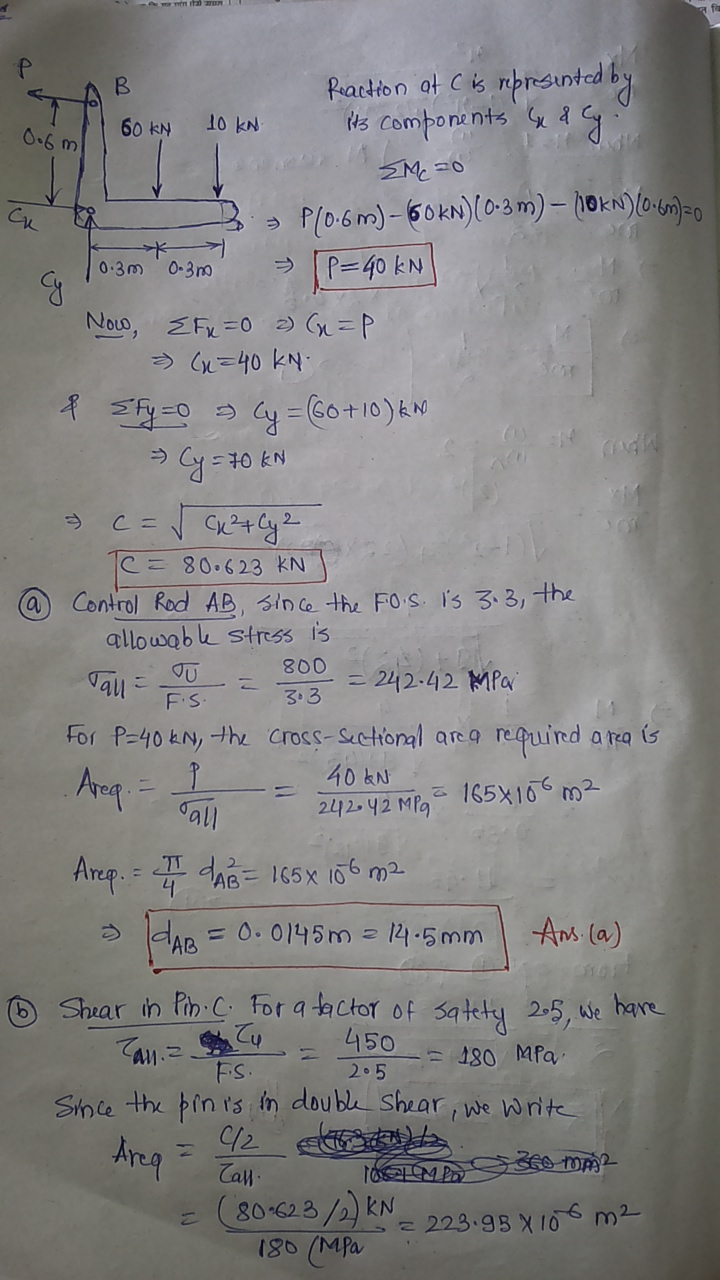 P
B
0.6 m
60 kN 10 kN
Cx
0.3m 0.3m
Cy
Reaction at C is represented by
its components Cx & Cy.
ΣMc = 0
⇒ P(0.6m) - (60kN)(0.3m) - (10kN)(0.6m)=0
⇒ P=40 kN
Now, ΣFx=0 ⇒ Cx = P
⇒ Cx=40 kN.
& ΣFy=0 ⇒ Cy = (60+10) kN
⇒ Cy = 70 kN
⇒ C = √(Cx²+Cy²)
C = 80.623 kN
(a) Control Rod AB, Since the F.O.S. is 3.3, the
allowable stress is
σall = σU / F.S. = 800 / 3.3 = 242.42 MPa
For P=40 kN, the cross-sectional area required area is
Areq. = P / σall = 40 kN / 242.42 MPa = 165×10⁻⁶ m²
Areq. = π/4 d²AB = 165× 10⁻⁶ m²
⇒ dAB = 0.0145m = 14.5mm Ans.(a)
(b) Shear in Pin. C. For a factor of safety 2.5, we have
τall. = τu / F.S. = 450 / 2.5 = 180 MPa.
Since the pin is in double shear, we write
Areq = C/2 / τall.
= (80.623/2) kN / 180 (MPa = 223.95 × 10⁻⁶ m²